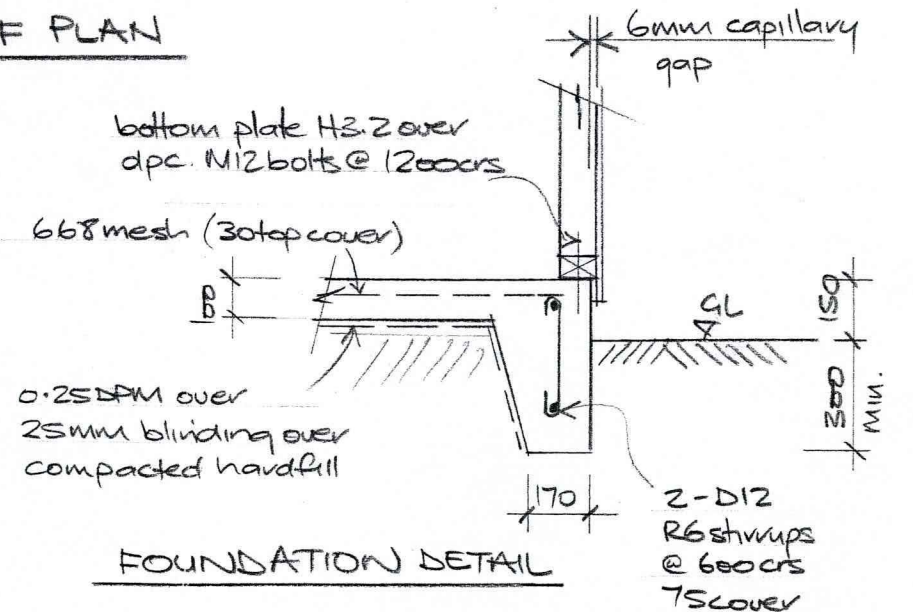 F PLAN
6mm capillary
gap
bottom plate H3.2 over
dpc. M12 bolts @ 1200crs
668 mesh (30 top cover)
100
GL
150
300
min.
0.25 DPM over
25mm blinding over
compacted hardfill
170
2-D12
R6 stirrups
@ 600crs
75 cover
FOUNDATION DETAIL